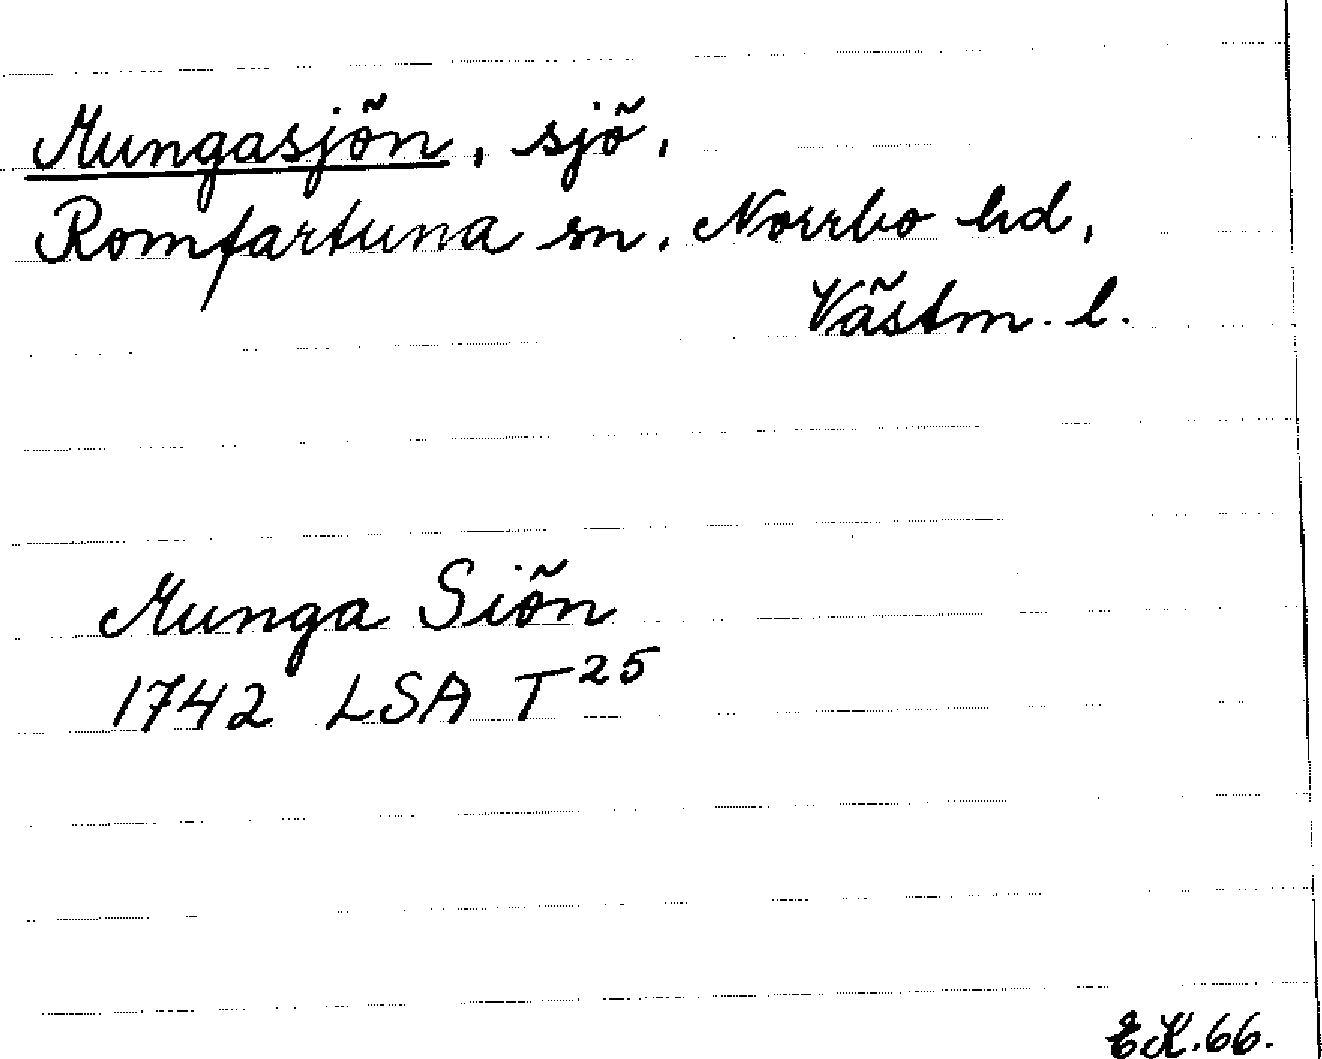 Mungasjön, sjö,
Romfartuna sn, Norrbo hd,
Västm. l.
Munga Siön
1742 LSA T25
E.K. 66.